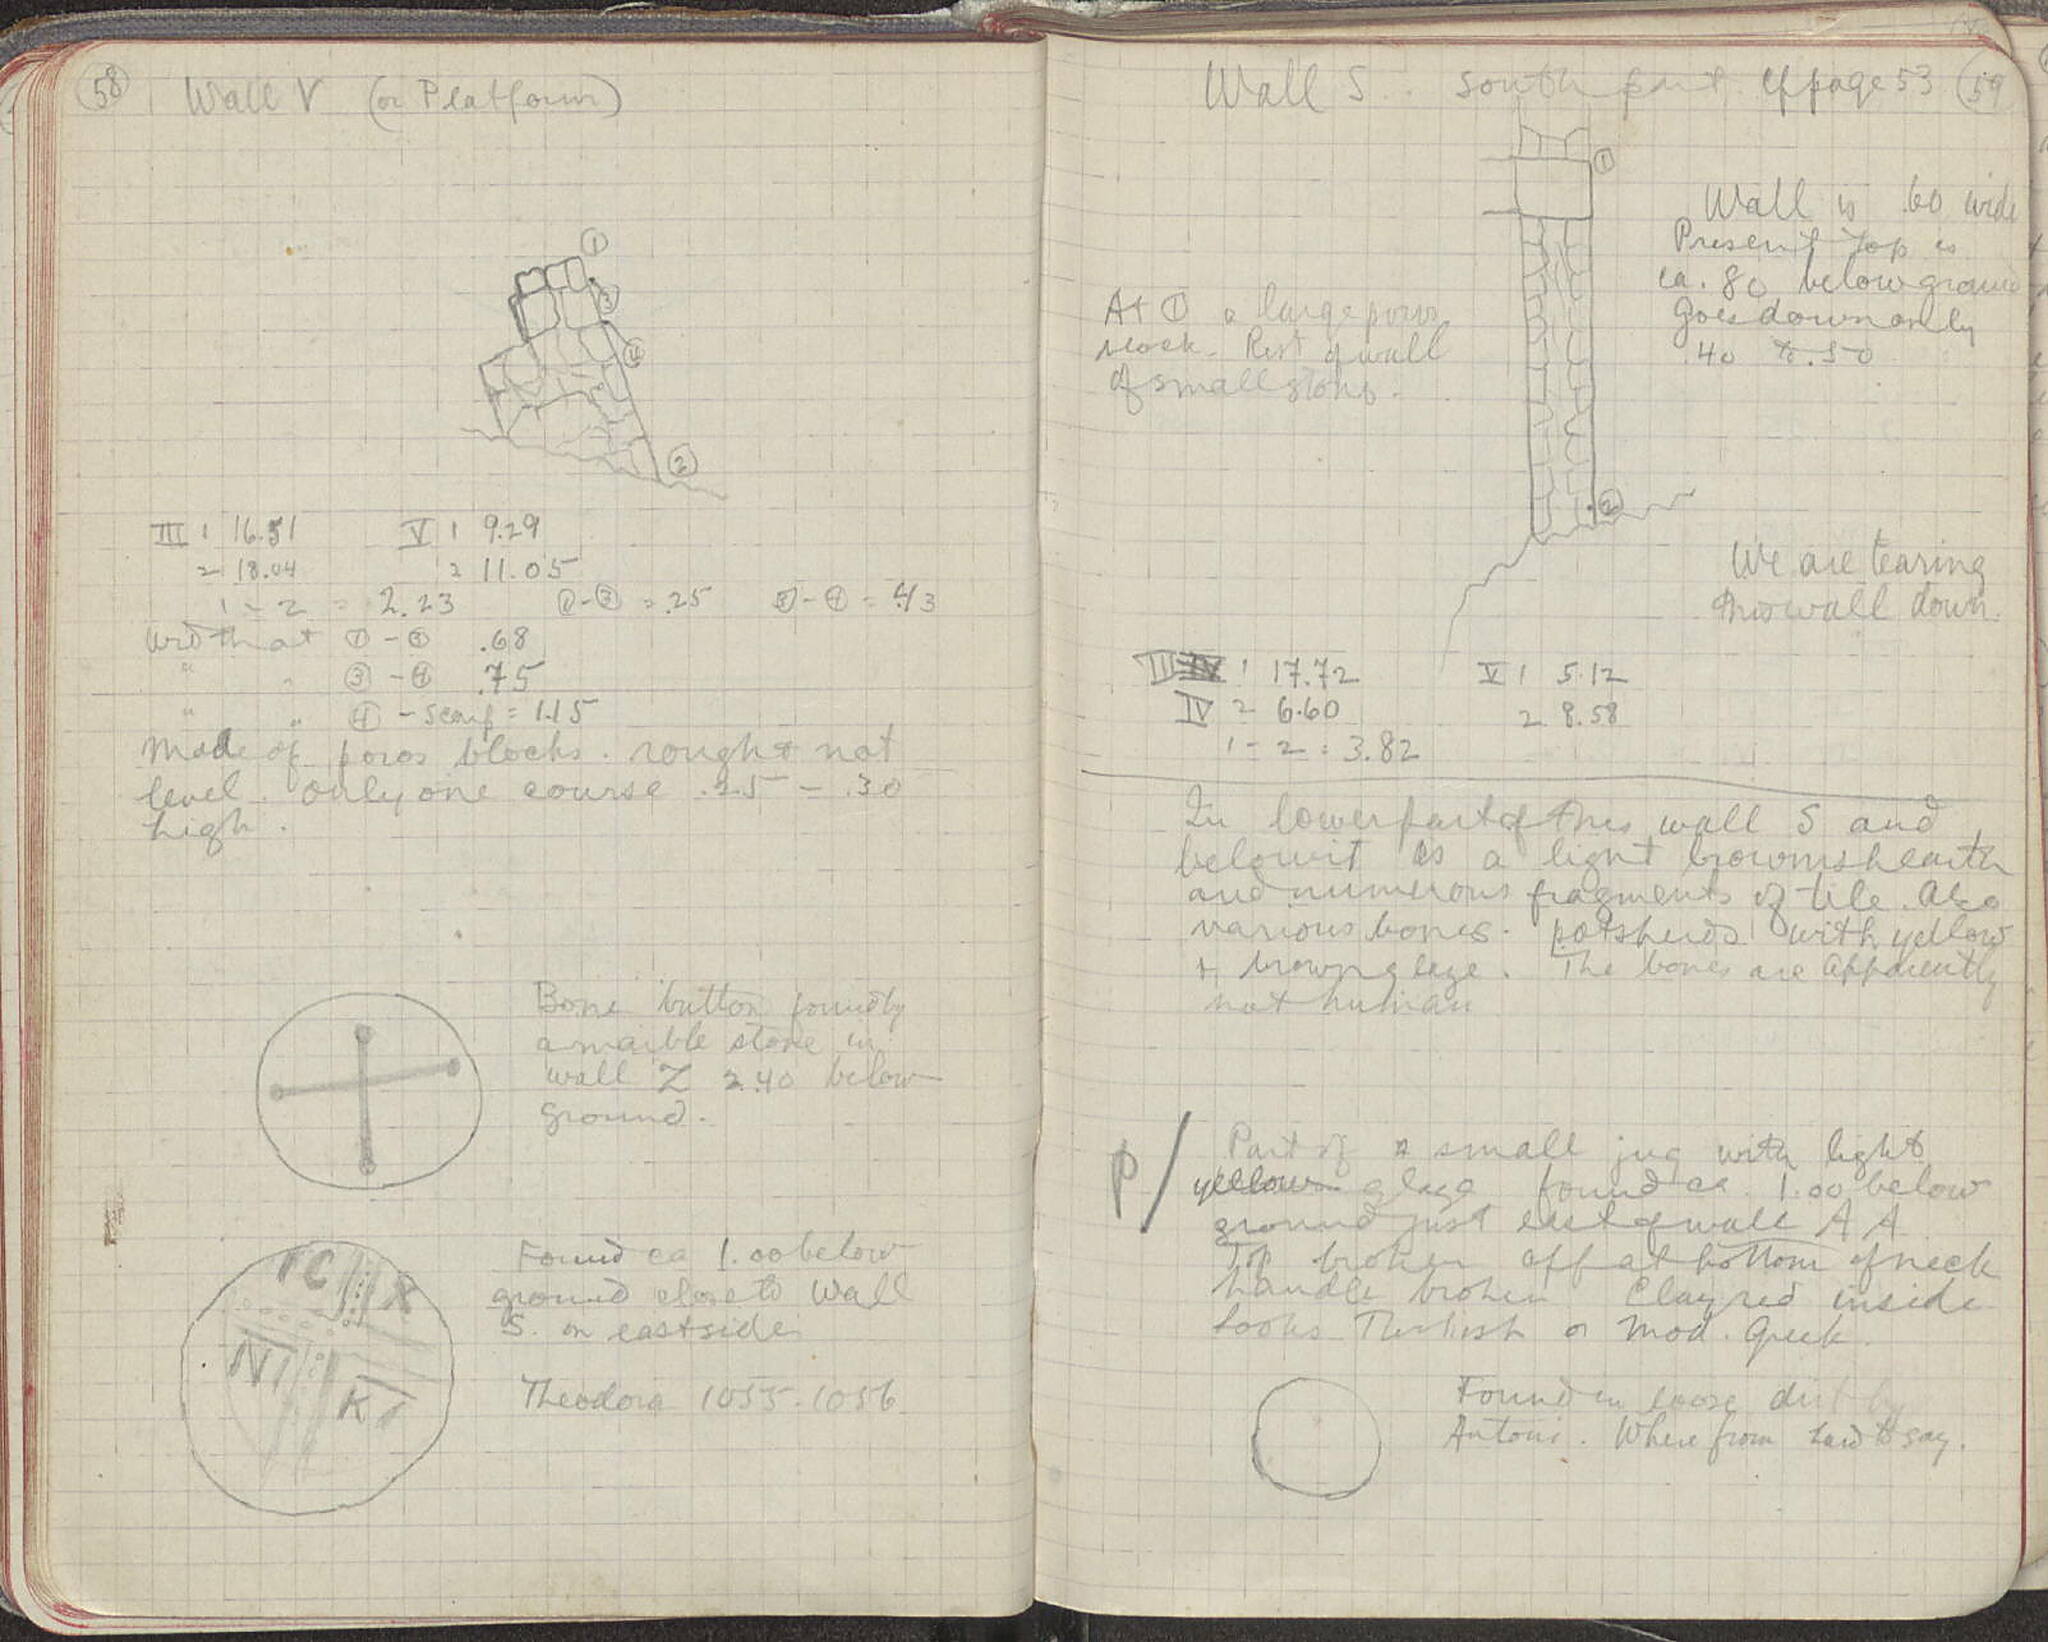 58
Wall V (or Platform)
①
③
④
②
III 1 16.51 V 1 9.29
2 18.04 2 11.05
1 - 2 = 2.23 ①-③ = .25 ③-④ = .43
Width at ①-③ .68
" " ③-④ .75
" " ④ - scarf = 1.15
Made of poros blocks. rough & not
level. Only one course .25 - .30
high.
Bone button found by
a marble stone in
wall Z 2.40 below
ground.
Found ca 1.00 below
ground close to Wall
S. on east side
Theodora 1055-1056
C X
N
K
Wall S. South part cf page 53 59
①
Wall is .60 wide
Present top is
ca. 80 below ground
Goes down only
.40 to .50
At ① a large poros
block. Rest of wall
of small stones.
②
We are tearing
this wall down.
III 1 17.72 V 1 5.12
IV 2 6.60 2 8.58
1 - 2 = 3.82
In lower part of this wall S and
below it is a light brownish earth
and numerous fragments of tile. Also
various bones. potsherds with yellow
+ brown glaze. The bones are apparently
not human
P/ Part of a small jug with light
yellow glaze found ca 1.00 below
ground just east of wall AA
Top broken off at bottom of neck
handle broken Clay red inside
Looks Turkish or Mod. Greek.
Found in loose dirt by
Antoni. Where from hard to say.